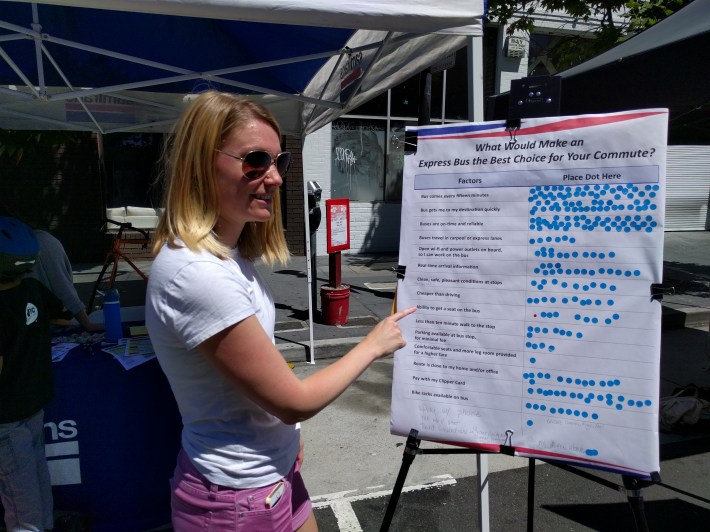 What Would Make an
Express Bus the Best Choice for Your Commute?
Factors Place Dot Here
Bus comes every fifteen minutes
Bus gets me to my destination quickly
Buses are on-time and reliable
Buses travel in carpool or express lanes
Open wi fi and power outlets on board,
so I can work on the bus
Real-time arrival information
Clean, safe, pleasant conditions at stops
Cheaper than driving
Ability to get a seat on the bus
Less than ten minute walk to the stop
Parking available at bus stop,
for nominal fee
Comfortable seats and more leg room provided
for a higher fare
Route is close to my home and/or office
Pay with my Clipper Card
Bike racks available on bus